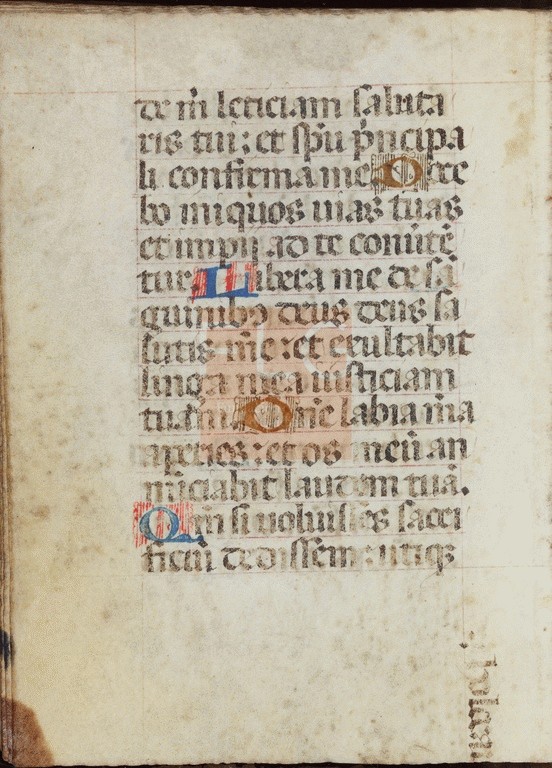 de m̄ leticiam saluta
ris tui: et sp̄u p̄ncipa
li confirma me Doce
bo iniquos uias tuas
et impij ad te conūtē
tur. Libera me de sā
guinibꝯ deus deus sa
lutis m̄e: et exultabit
linga mea iusticiam
tuam. Dn̄e labia m̄a
aperies: et os meū an
nūciabit laudem tuā.
Qm̄ si uoluisses sacri
ficiū dedissem: utiqꝫ